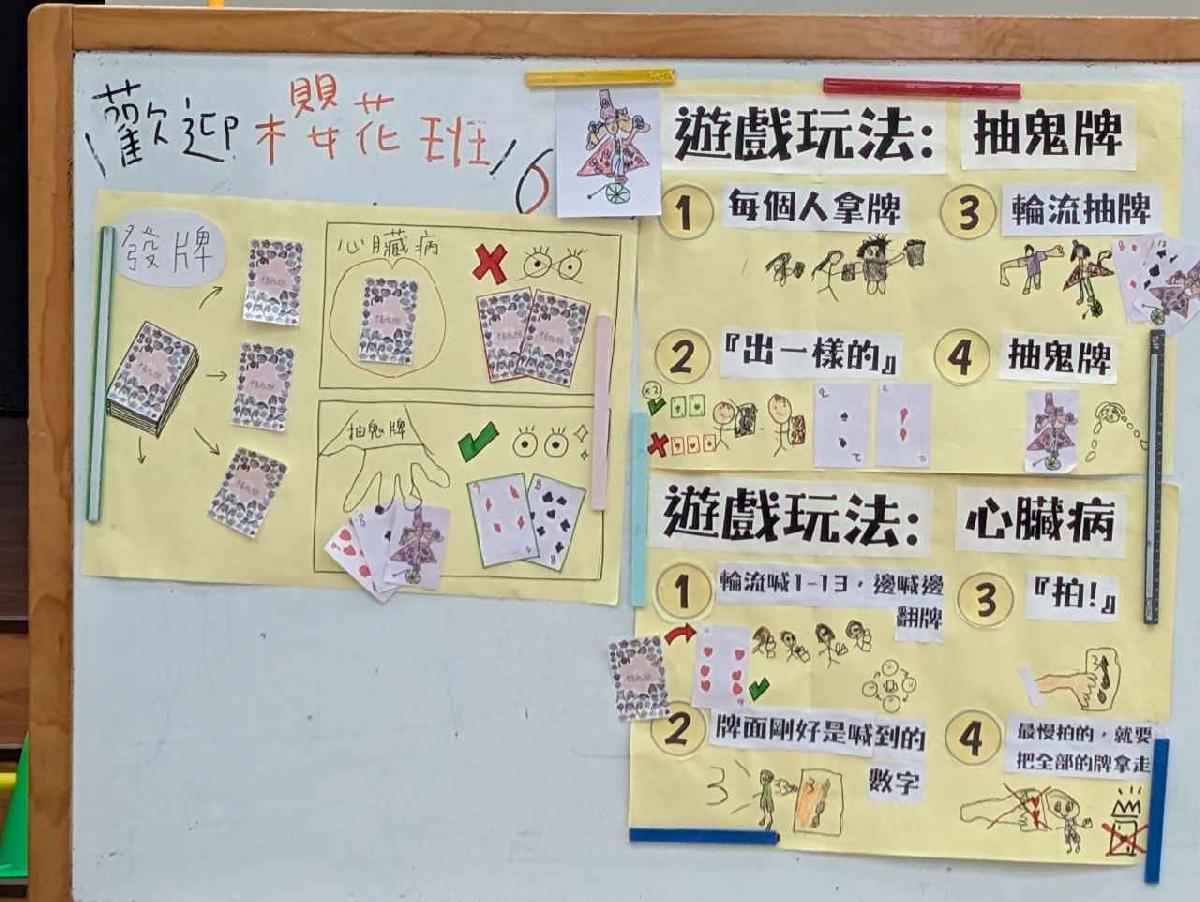 歡迎櫻花班
發牌
心臟病
抽鬼牌
遊戲玩法: 抽鬼牌
1 每個人拿牌
2 『出一樣的』
x2
3 輪流抽牌
4 抽鬼牌
遊戲玩法: 心臟病
1 輪流喊1-13，邊喊邊
翻牌
2 牌面剛好是喊到的
數字
3
3 『拍!』
4 最慢拍的，就要
把全部的牌拿走